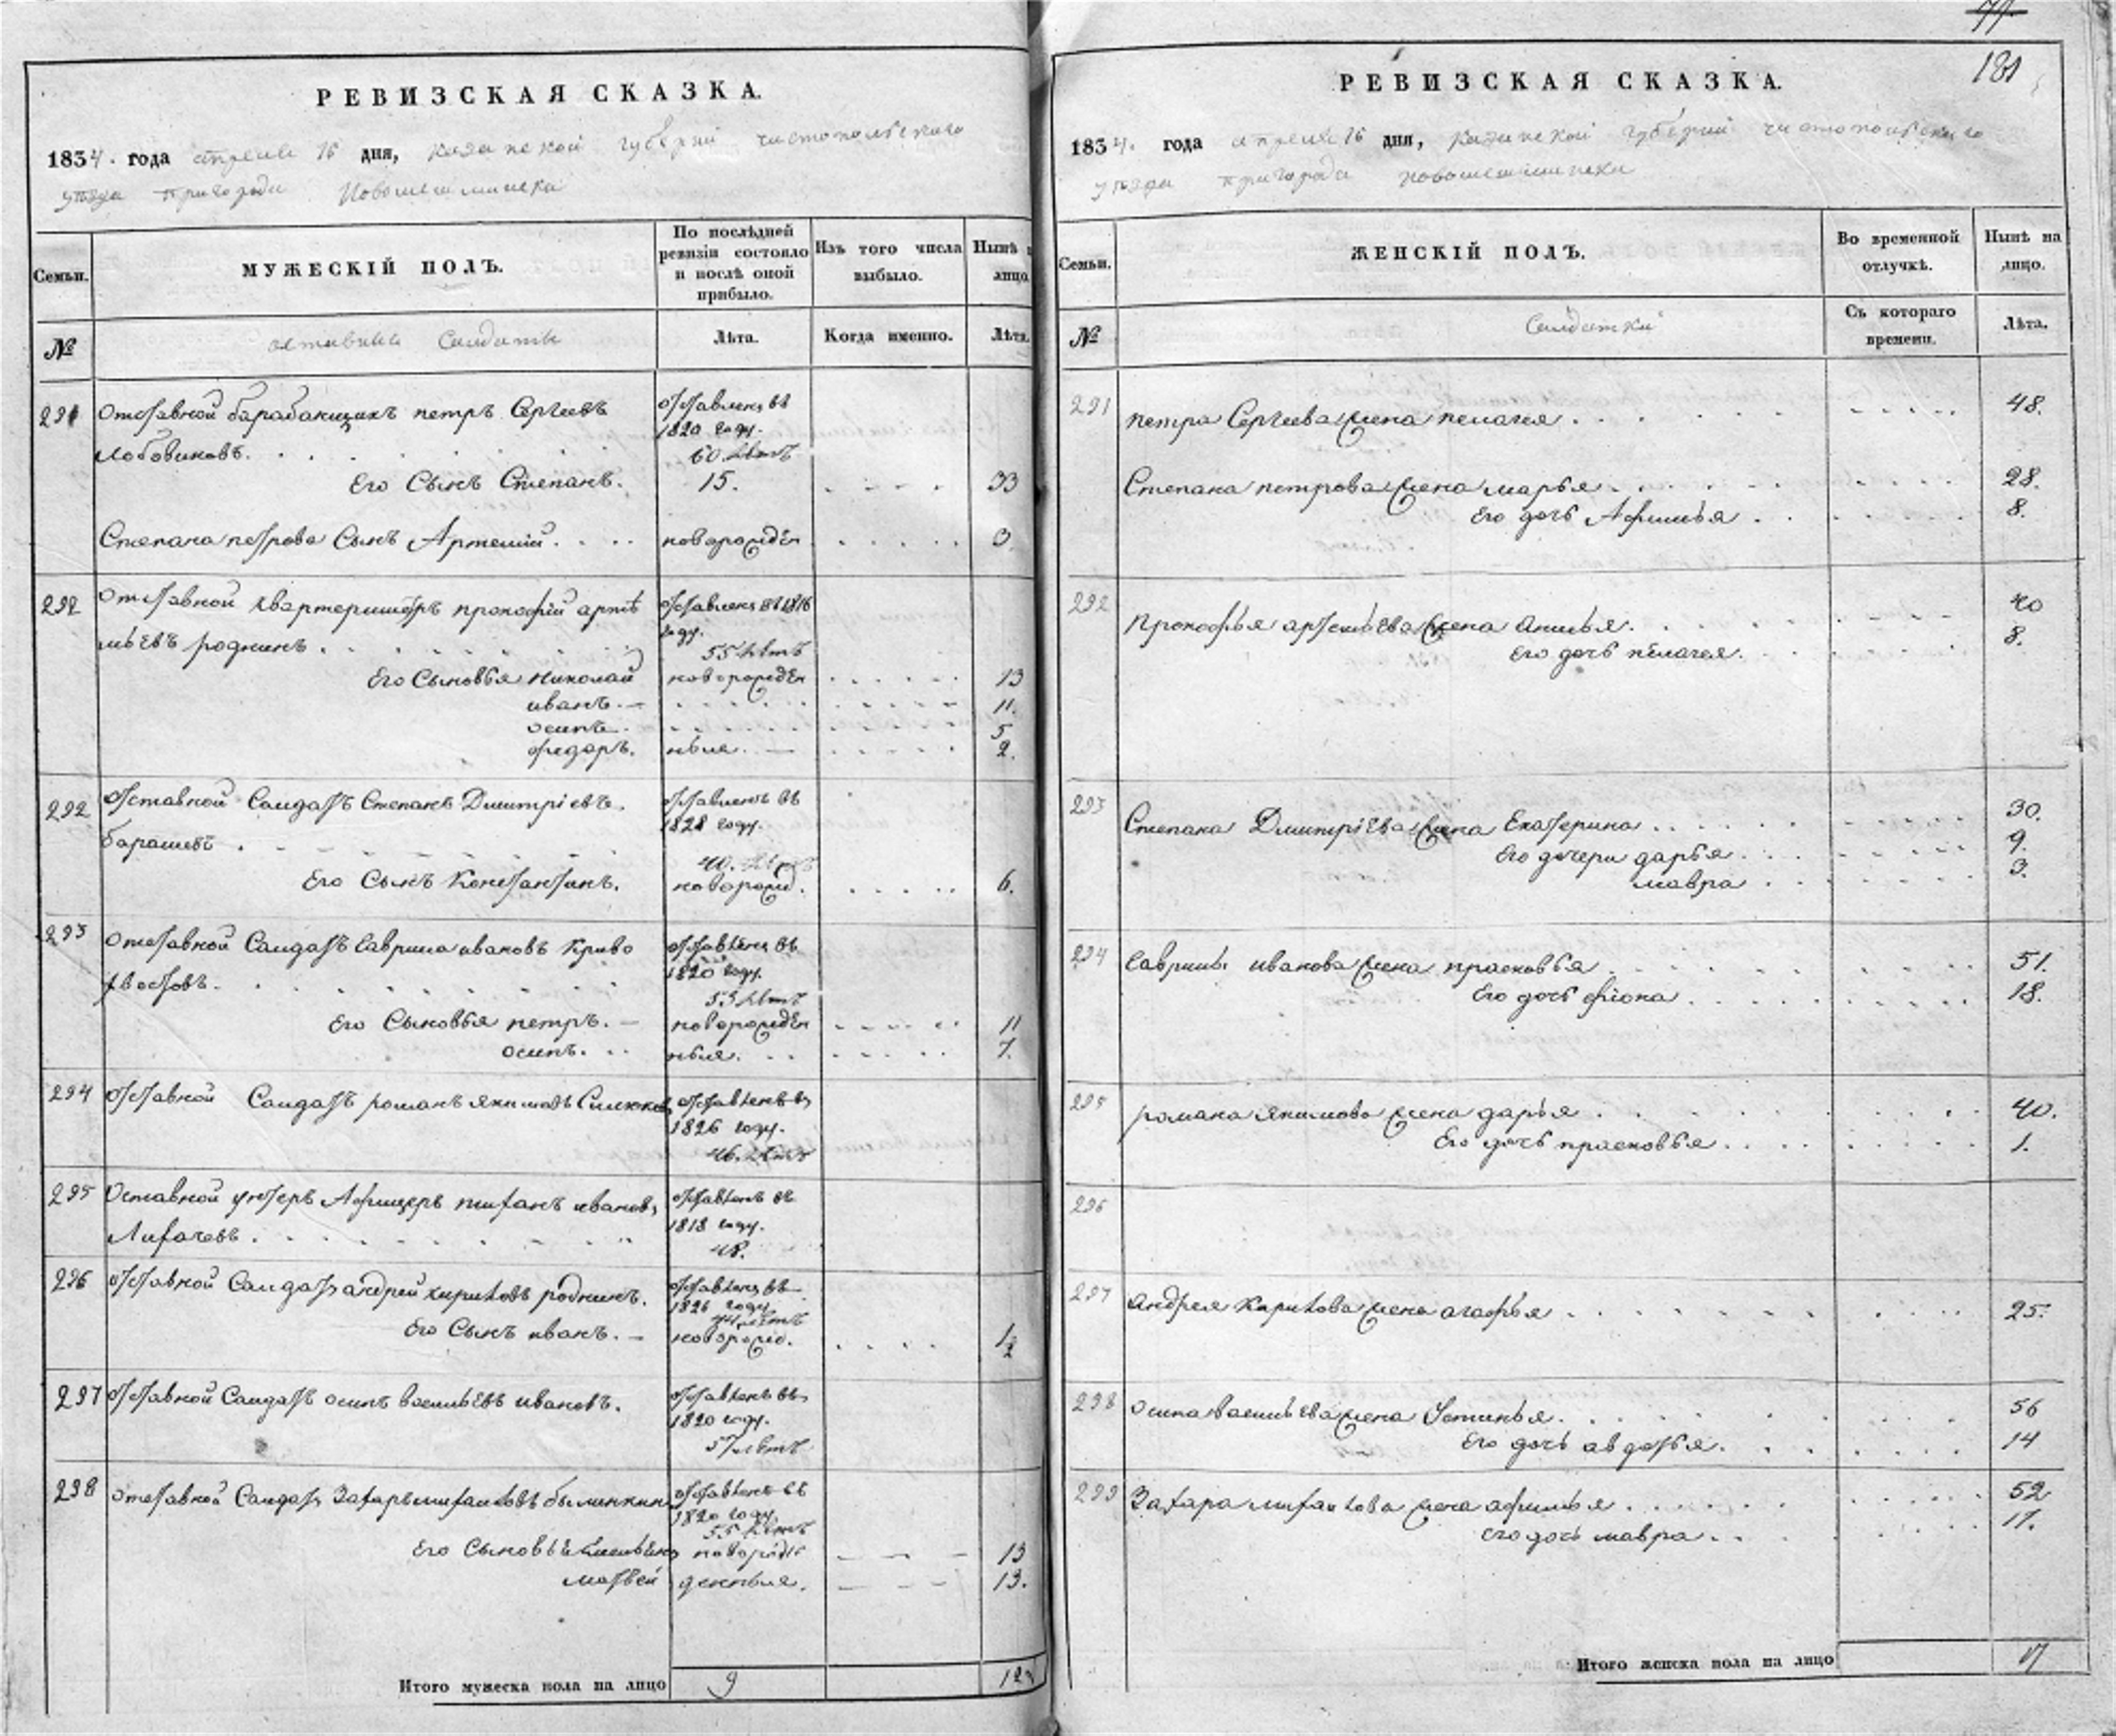 РЕВИЗСКАЯ СКАЗКА.
1834. года апреля 16 дня, казанской губернии чистопольского
уезда пригорода Новошешминска
Семьи. МУЖЕСКІЙ ПОЛЪ. По послѣдней ревизіи состояло и послѣ оной прибыло. Изъ того числа выбыло. Нынѣ лицо
№ отставные Салдаты Лѣта. Когда именно. Лѣта.
291 отставной барабанщикъ петръ Сергеевъ отставленъ въ
1820 году.
Лобовиковъ. 60 летъ
Его Сынъ Степанъ. 15. 33
Степана петрова Сынъ Артемий. новорожден 3
292 отставной квартермистръ прокофий арте отставленъ въ 1816
году.
мьевъ роднинъ. 55 летъ
Его Сыновья николай новорожден 13
иванъ. 11.
осипъ. 5
федаръ. ные. 2.
292 отставной Салдатъ Степанъ Дмитріевъ. отставленъ въ
1828 году.
барашевъ 40. летъ
Его Сынъ Константинъ. новорожд. 6.
293 отставной Салдатъ Гаврила ивановъ Криво отставленъ въ
1820 году.
хвостовъ. 53 летъ
Его Сыновья петръ. новорожден 11
осипъ. ные. 7.
294 отставной Салдатъ романъ якимовъ отставленъ въ
1826 году.
46. летъ
295 Отставной унтеръ Афицеръ ивановъ отставленъ въ
1818 году.
Лихачевъ. 48.
296 отставной Салдатъ андрей кириловъ роднинъ. отставленъ въ
1826 году
летъ
Его Сынъ иванъ. новорожд. 1/2
297 отставной Салдатъ осипъ васильевъ ивановъ. отставленъ въ
1820 году.
57 летъ
298 отставной Салдатъ Захаръ михаиловъ отставленъ въ
1820 году.
55 летъ
Его Сыновья 13
матвей 13.
Итого мужеска пола на лицо 9 12
181
РЕВИЗСКАЯ СКАЗКА.
1834. года апреля 16 дня, казанской губернии чистопольского
уезда пригорода новошешминска
Семьи. ЖЕНСКІЙ ПОЛЪ. Во временной отлучкѣ. Нынѣ на лицо.
№ Салдатки Съ котораго времени. Лѣта.
291 петра Сергеева жена пелагея. 48.
Степана петрова жена марья. 28.
Его дочь Афимья. 8.
292 40
прокофья артемьева жена анисья.
Его дочь пелагея. 8.
293 Степана Дмитріева жена Екатерина 30.
Его дочери дарья. 9.
мавра 3.
294 Гаврилы иванова жена прасковья 51.
Его дочь фіона. 18.
295 романа якимова жена дарья 40.
Его дочь прасковья. 1.
296
297 андрея Карилова жена агафья 25.
298 осипа васильева жена Устинья. 56
Его дочь авдотья. 14
299 Захара михаилова жена афимья 52
его дочь мавра. 17.
Итого женска пола на лицо 17